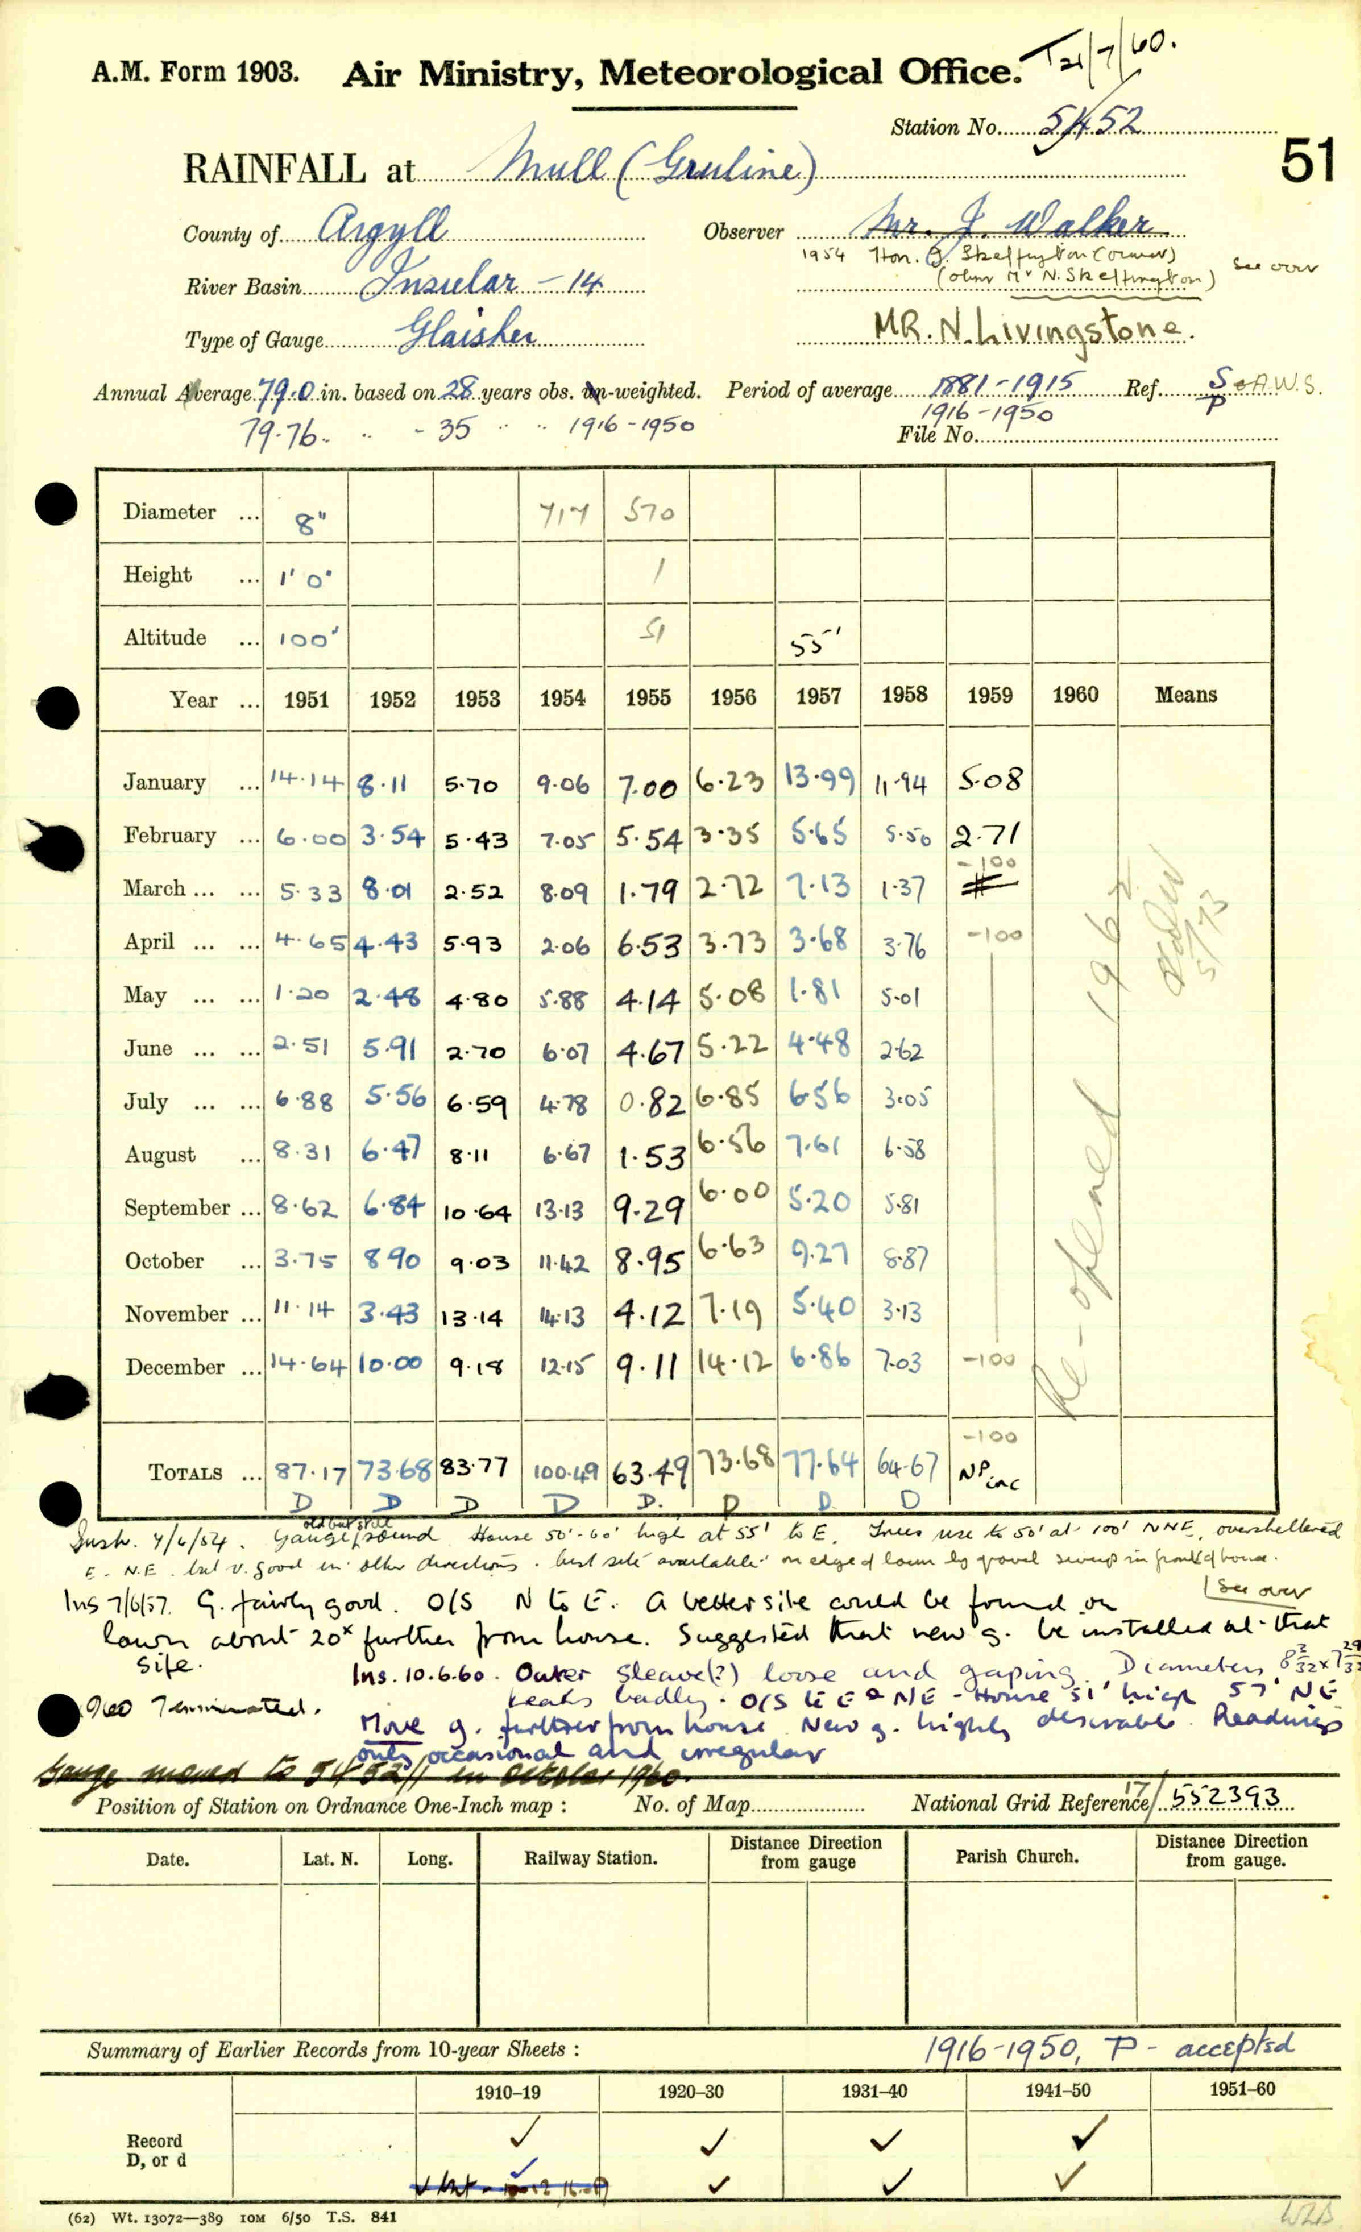 T 21/7/60.
A.M. Form 1903. Air Ministry, Meteorological Office.
Station No. 5452
51
RAINFALL at Mull (Gruline)
County of Argyll Observer Mr. J. Walker
1954 Hon. J. Skeffington (owner)
River Basin Insular - 14 (obsr Mr N. Skeffington) see over
Type of Gauge Glaisher MR. N. Livingstone.
Annual Average 79.0 in. based on 28 years obs. un-weighted. Period of average 1881-1915 Ref. S A.W.S.
79.76 " " - 35 " " 1916-1950 1916-1950 P
File No.
Diameter ... 8" 717 570
Height ... 1' 0" 1
Altitude ... 100' 51 55'
Year ... 1951 1952 1953 1954 1955 1956 1957 1958 1959 1960 Means
January ... 14.14 8.11 5.70 9.06 7.00 6.23 13.99 11.94 5.08
February ... 6.00 3.54 5.43 7.05 5.54 3.35 5.65 5.50 2.71
March ... ... 5.33 8.01 2.52 8.09 1.79 2.72 7.13 1.37 -100
April ... ... 4.65 4.43 5.93 2.06 6.53 3.73 3.68 3.76 -100
May ... ... 1.20 2.48 4.80 5.88 4.14 5.08 1.81 5.01
June ... ... 2.51 5.91 2.70 6.07 4.67 5.22 4.48 2.62
July ... ... 6.88 5.56 6.59 4.78 0.82 6.85 6.56 3.05
August ... 8.31 6.47 8.11 6.67 1.53 6.56 7.61 6.58
September ... 8.62 6.84 10.64 13.13 9.29 6.00 5.20 5.81
October ... 3.75 8.90 9.03 11.42 8.95 6.63 9.27 8.87
November ... 11.14 3.43 13.14 14.13 4.12 7.19 5.40 3.13
December ... 14.64 10.00 9.18 12.15 9.11 14.12 6.86 7.03 -100
Re-opened 1962
5/73
-100
TOTALS ... 87.17 73.68 83.77 100.49 63.49 73.68 77.64 64.67 NP inc
D D D D D. D D D
Instr. 4/6/54. Gauge old but still sound. House 50'-60' high at 55' to E. Trees rise to 50' at 100' NNE, oversheltered
E - N.E. but v. good in other directions. best site available on edge of lawn by gravel sweep in front of house.
see over
Ins 7/6/57. G. fairly good. O/S N to E. A better site could be found on
lawn about 20x further from house. Suggested that new g. be installed at that
site.
Ins. 10.6.60. Outer sleeve(?) loose and gaping. Diameters 8 3/32 x 7 29/32
Leaks badly. O/S to E & NE - House 51' high 57' NE
1960 Terminated.
Move g. further from house. New g. highly desirable. Readings
only occasional and irregular
Gauge moved to 5452/1 in October 1960.
Position of Station on Ordnance One-Inch map : No. of Map National Grid Reference 17/552393
Date. Lat. N. Long. Railway Station. Distance Direction from gauge Parish Church. Distance Direction from gauge.
Summary of Earlier Records from 10-year Sheets : 1916-1950, P - accepted
1910–19 1920–30 1931–40 1941–50 1951–60
Record ✓ ✓ ✓ ✓
D, or d ✓ ✓ ✓ ✓
(62) Wt. 13072—389 10M 6/50 T.S. 841